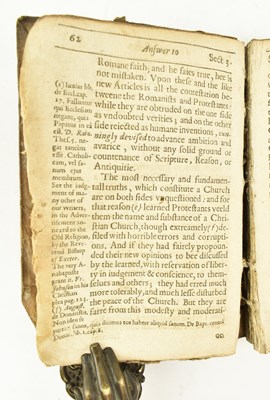 62
Answer to
Sect. 3.
Romane faith; and he saies true, hee is
not mistaken. Vpon these and the like
new Articles is all the contestation be-
tweene the Romanists and Protestants:
while they are obtruded on the one side
as vndoubted verities; and on the other
side rejected as humane inventions, cun-
ningly devised to advance ambition and
avarice, without any solid ground or
countenance of Scripture, Reason, or
Antiquitie.
The most necessary and fundamen-
tall truths, which constitute a Church
are on both sides vnquestioned; and for
that reason (f) learned Protestants yeeld
them the name and substance of a Chri-
stian Church, though extremely (f) de-
filed with horrible errors and corrupti-
ons. And if they had fairely propoun-
ded their new opinions to bee discussed
by the learned, with reservation of liber-
ty in iudgement & conscience, to them-
selues and others; they had erred much
more tolerably, and much lesse disturbed
the peace of the Church. But they are
farre from this modesty and moderati-
on
de Eccl. cap.
17. Falluntur
qui Ecclesiam
negant, quia
Papatus in ea
est. D. Rain.
negat tantùm
esse Catholi-
cam, vel sa-
num ejus
membrum.
See the judg-
ment of ma-
ny other of
our writers,
in the Adver-
tisement an-
nexed to the
Old Religion,
by the Reve-
rend Bishop
of Exeter.
The very A-
nabaptists
grant it. Fr.
Iohnson in his
Christian
plea pag. 123.